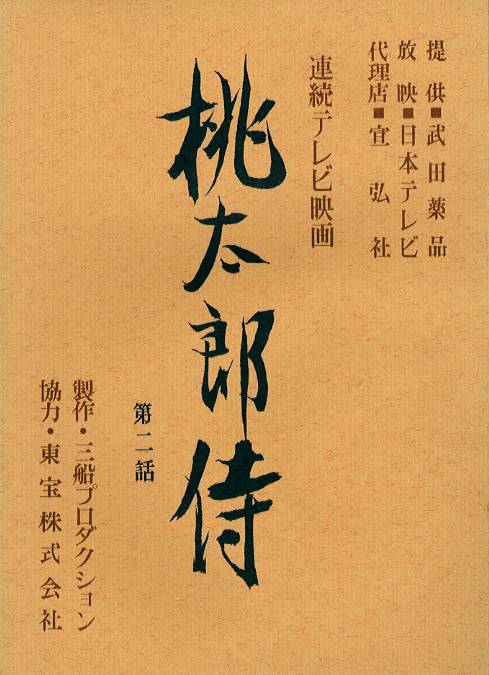 提供■武田薬品
放映■日本テレビ
代理店■宣弘社
連続テレビ映画
桃太郎侍
第二話
製作・三船プロダクション
協力・東宝株式会社